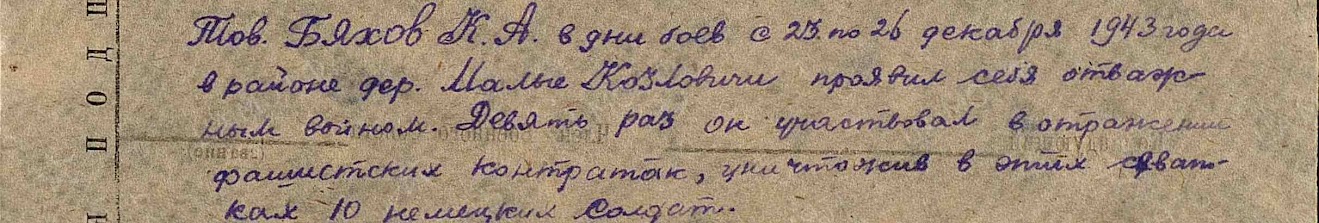 Тов. Бяхов К.А. в дни боев с 23 по 26 декабря 1943 года
в районе дер. Малые Козловичи проявил себя отваж-
ным воином. Девять раз он участвовал в отражении
фашистских контратак, уничтожив в этих схват-
ках 10 немецких солдат.